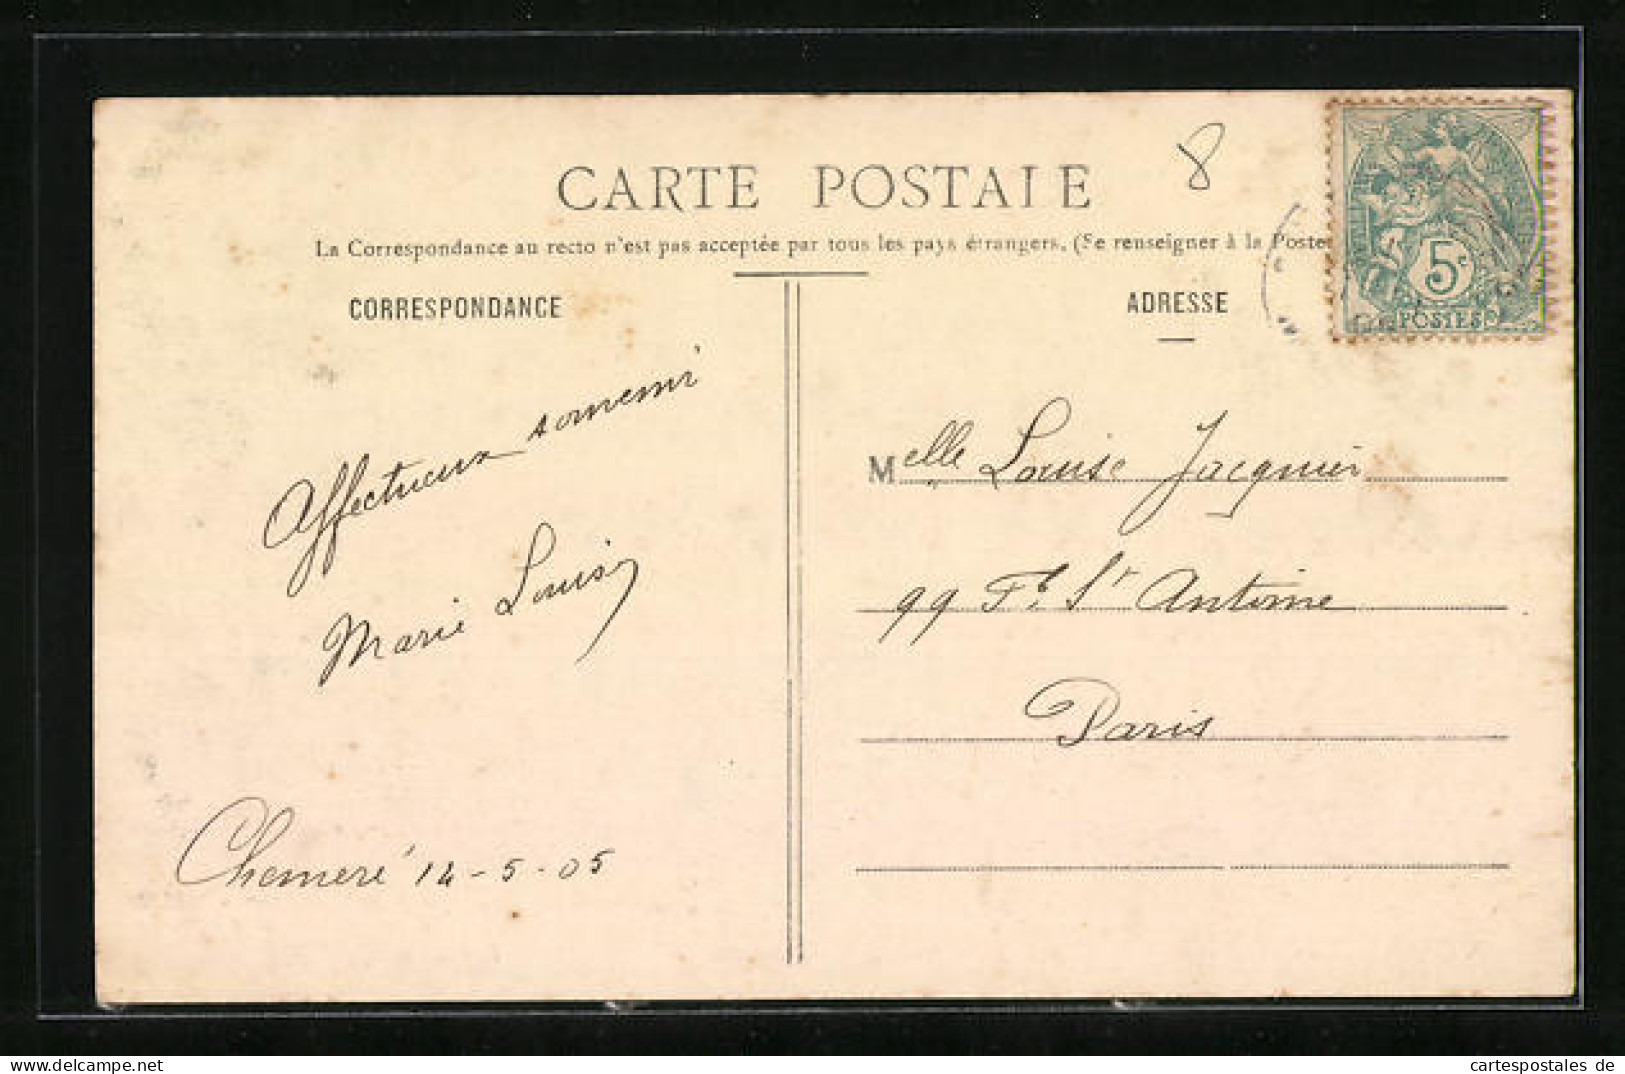 8
CARTE POSTALE
La Correspondance au recto n'est pas acceptée par tous les pays étrangers. (Se renseigner à la Poste
CORRESPONDANCE
Affectueux souvenir
Marie Louise
Chemeré 14-5-05
ADRESSE
5c
POSTES
Melle Louise Jacquier
99 Fg St Antoine
Paris
cartespostales de